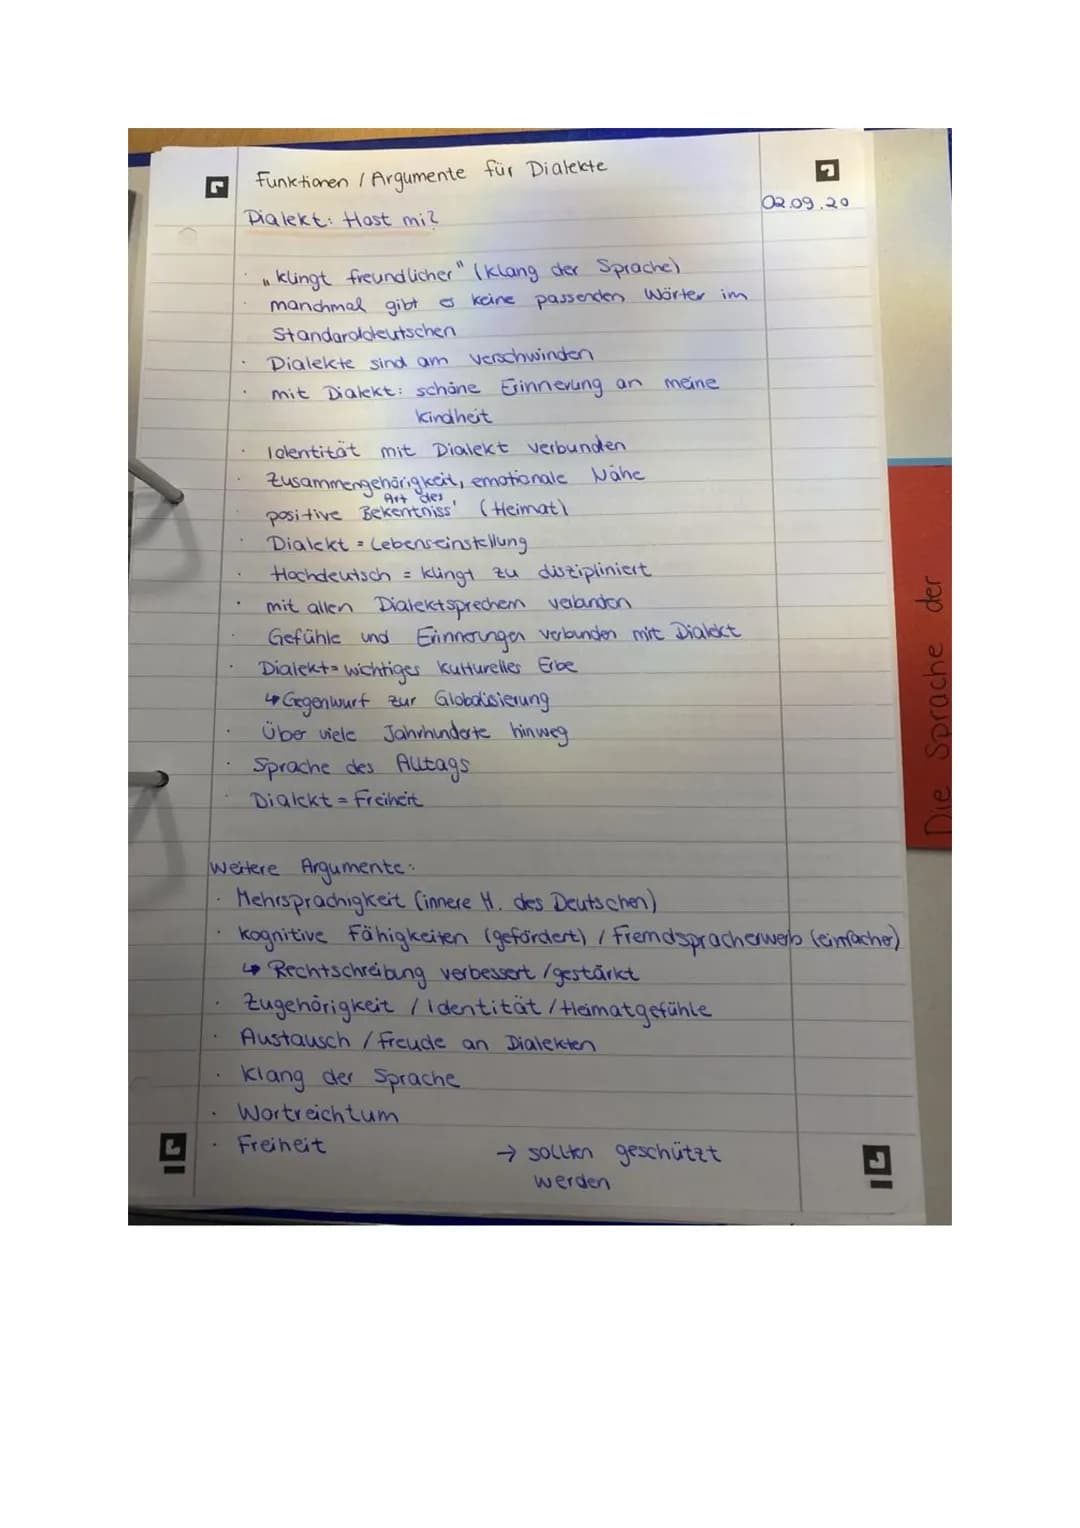 Funktionen / Argumente für Dialekte
02.09.20
Dialekt: Host mi?
· „klingt freundlicher" (Klang der Sprache)
· manchmal gibt es keine passenden Wörter im
Standarddeutschen
· Dialekte sind am verschwinden
· mit Dialekt: schöne Erinnerung an meine
Kindheit
· Identität mit Dialekt verbunden
· Zusammengehörigkeit, emotionale Nähe
Art des
· positive Bekentniss' (Heimat)
· Dialekt = Lebenseinstellung
· Hochdeutsch = klingt zu diszipliniert
· mit allen Dialektsprechern verbunden
· Gefühle und Erinnerungen verbunden mit Dialekt
· Dialekt = wichtiges kulturelles Erbe
↳ Gegenwurf zur Globalisierung
· Über viele Jahrhunderte hinweg
· Sprache des Alltags
· Dialekt = Freiheit
Weitere Argumente:
· Mehrsprachigkeit (innere M. des Deutschen)
· kognitive Fähigkeiten (gefördert) / Fremdspracherwerb (einfacher)
↳ Rechtschreibung verbessert / gestärkt
· Zugehörigkeit / Identität / Heimatgefühle
· Austausch / Freude an Dialekten
· Klang der Sprache
· Wortreichtum
· Freiheit
→ sollten geschützt
werden
Die Sprache der